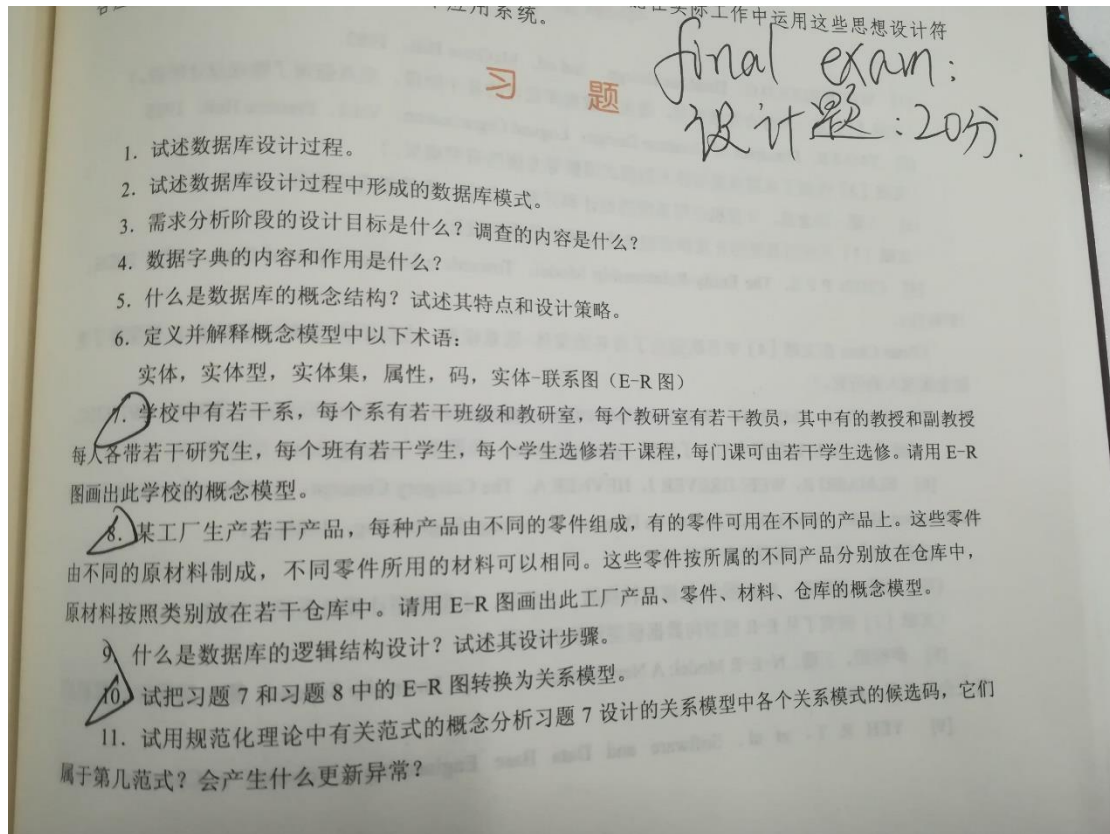 应用系统。
实际工作中运用这些思想设计符
final exam:
设计题:20分.
习 题
1. 试述数据库设计过程。
2. 试述数据库设计过程中形成的数据库模式。
3. 需求分析阶段的设计目标是什么?调查的内容是什么?
4. 数据字典的内容和作用是什么?
5. 什么是数据库的概念结构?试述其特点和设计策略。
6. 定义并解释概念模型中以下术语:
实体,实体型,实体集,属性,码,实体-联系图(E-R 图)
7. 学校中有若干系,每个系有若干班级和教研室,每个教研室有若干教员,其中有的教授和副教授
每人各带若干研究生,每个班有若干学生,每个学生选修若干课程,每门课可由若干学生选修。请用 E-R
图画出此学校的概念模型。
8. 某工厂生产若干产品,每种产品由不同的零件组成,有的零件可用在不同的产品上。这些零件
由不同的原材料制成,不同零件所用的材料可以相同。这些零件按所属的不同产品分别放在仓库中,
原材料按照类别放在若干仓库中。请用 E-R 图画出此工厂产品、零件、材料、仓库的概念模型。
9. 什么是数据库的逻辑结构设计?试述其设计步骤。
10. 试把习题 7 和习题 8 中的 E-R 图转换为关系模型。
11. 试用规范化理论中有关范式的概念分析习题 7 设计的关系模型中各个关系模式的候选码,它们
属于第几范式?会产生什么更新异常?